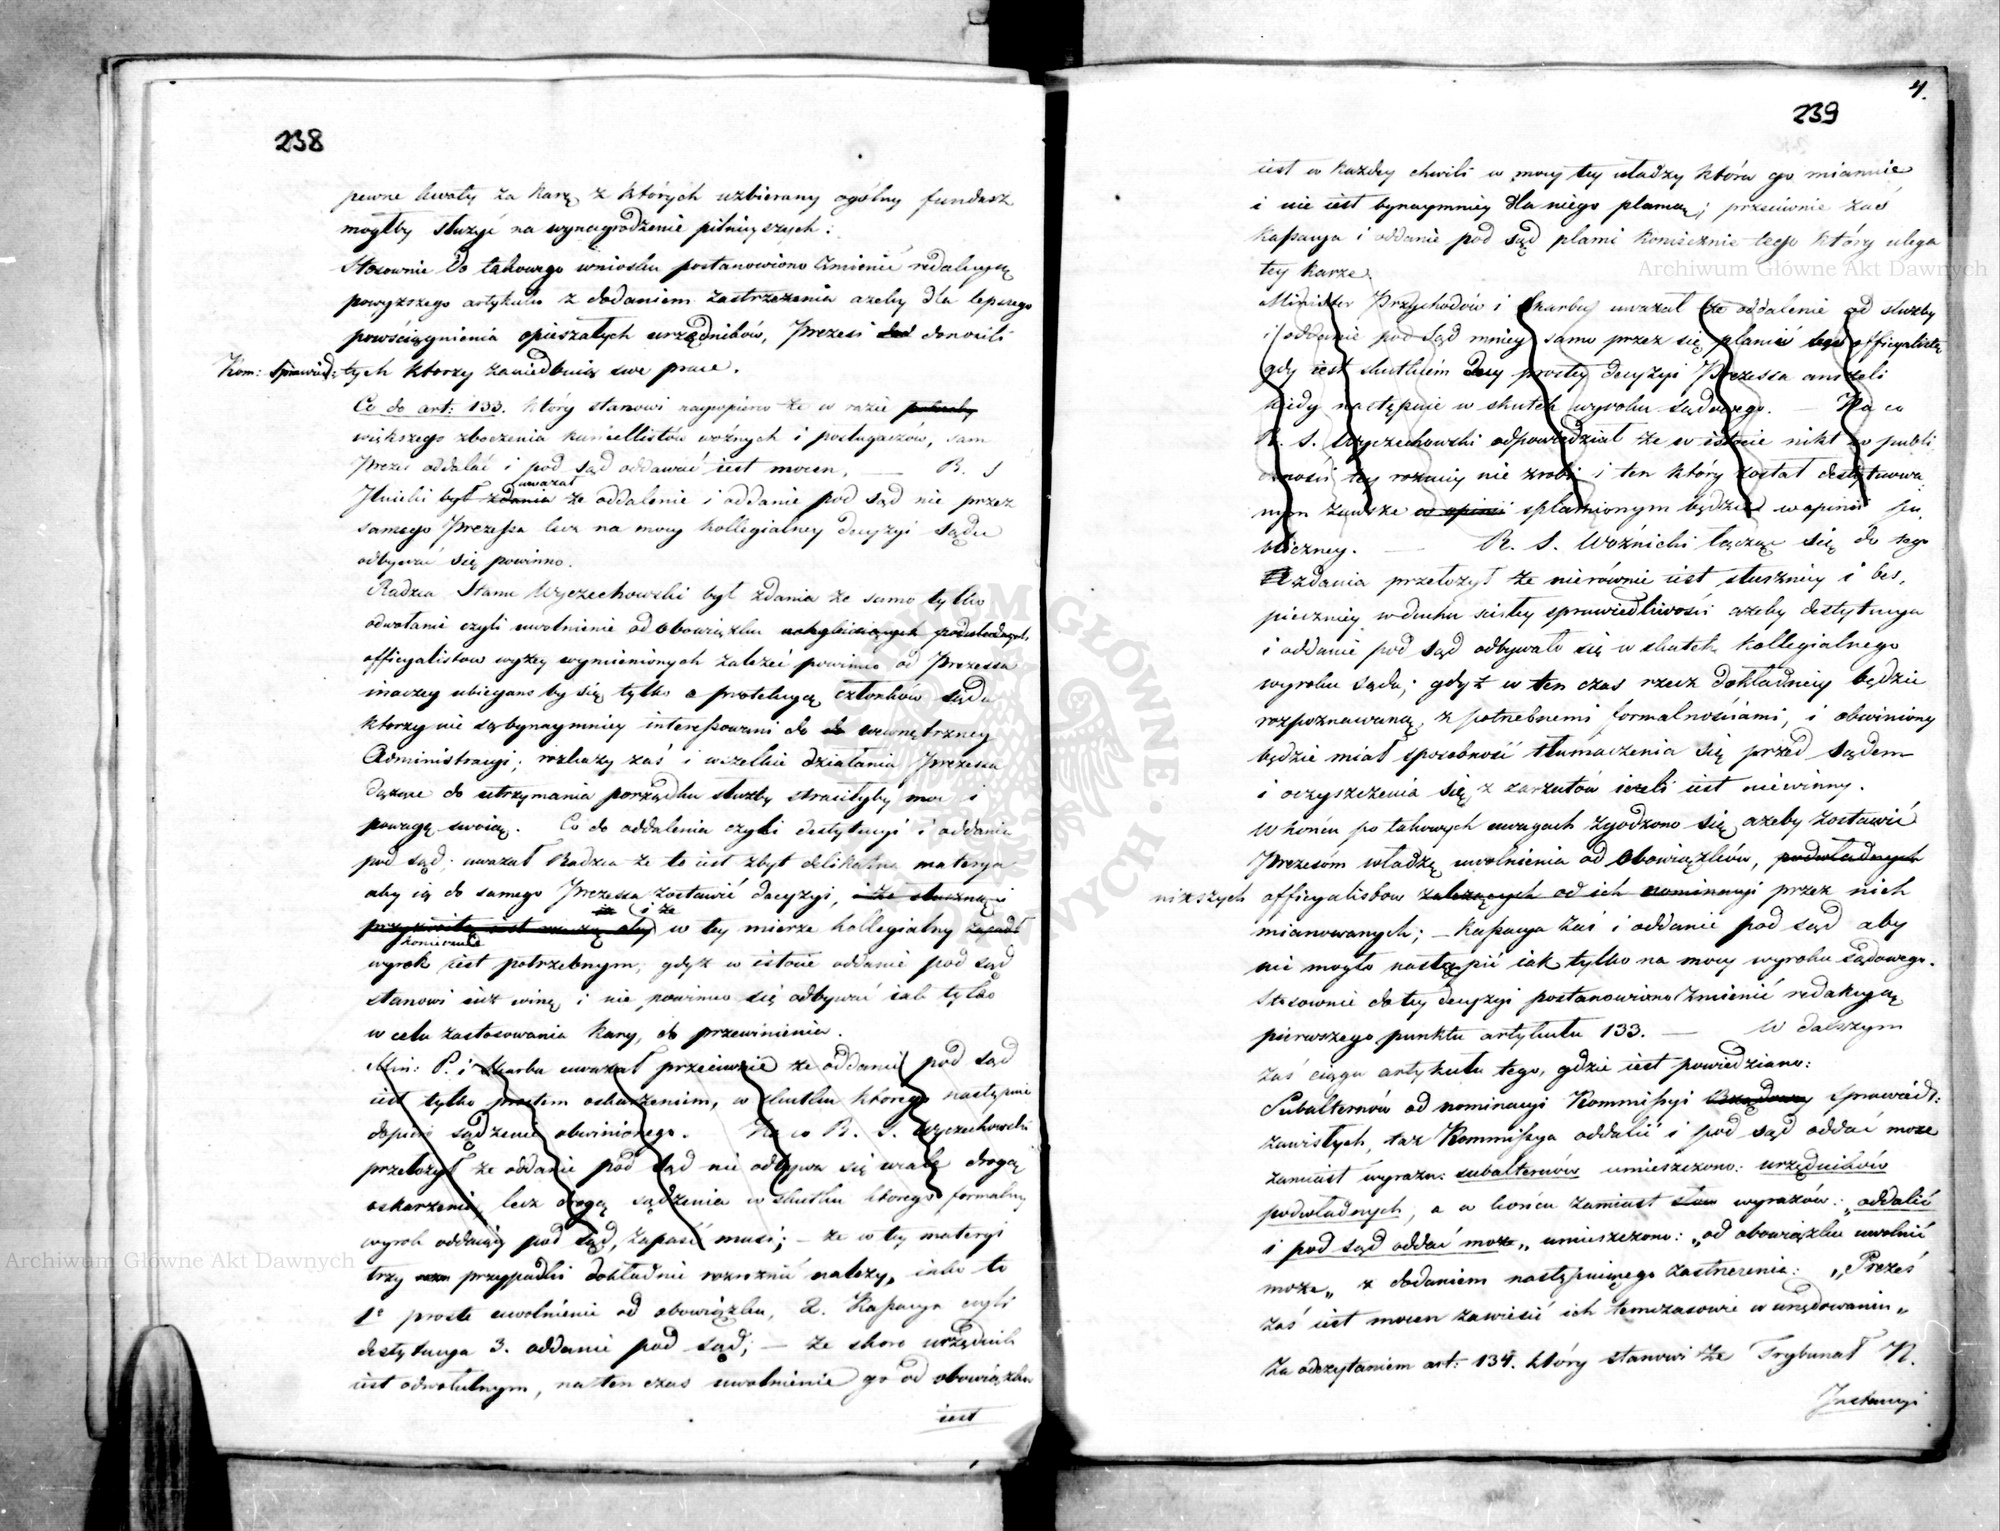 238
pewne kwoty za karę z których uzbierany ogólny fundusz
mogłby służyć na wynagrodzenie pilnieyszych:
Stosownie do takowego wniosku postanowiono zmienić redakcyą
powyższego artykułu z dodaniem zastrzeżenia ażeby dla lepszego
powściągnienia opieszałych urzędników, Prezesi donosili
Kom: Sprawied: tych którzy zaniedbuią swe prace.
Co do art: 133. który stanowi naypierwo że w razie
większego zboczenia kancellistów woźnych i posługaczów, sam
Prezes oddalać i pod sąd oddawać iest mocen. — R. S
uważał
Ilnicki był zdania że oddalenie i oddanie pod sąd nie przez
samego Prezessa lecz na mocy kollegialney decyzyi sądu
odbywać się powinno.
Radzca Stanu Wyczechowski był zdania że samo tylko
odwołanie czyli uwolnienie od obowiązku podwładnych
officyalistow wyżey wymienionych zależeć powinno od Prezessa
inaczey ubiegano by się tylko o protekcyą członków sądu
ktorzy nie są bynaymniey interessowani do wewnętrzney
Administracyi; rozkazy zaś i wszelkie działania Prezessa
dążące do utrzymania porządku służby straciłyby moc i
powagę swoią. Co do oddalenia czyli destytucyi i oddania
pod sąd; uważał Radzca że to iest zbyt delikatna materya
aby ią do samego Prezessa zostawić decyzyi, i że słuszną
i że
przyzwoitą iest rzeczą aby w tey mierze kollegialny zapadł
koniecznie
wyrok iest potrzebnym, gdyż w istocie oddanie pod sąd
stanowi iuż winę i nie powinno się odbywać iak tylko
w celu zastosowania kary do przewinienia.
Min: P. i Skarbu uważał przeciwnie że oddanie pod sąd
iest tylko prostem oskarżeniem, w skutku którego następuie
dopiero sądzenie obwinionego. Na co R. S. Wyczechowski
przełożył że oddanie pod sąd nie odbywa się wcale drogą
oskarżenia, lecz drogą sądzenia w skutku którego formalny
wyrok oddaiący pod sąd, zapaść musi; — że w tey materyi
trzy przypadki dokładnie rozróżnić należy, iako to
1º proste uwolnienie od obowiązku, 2. Kassacya czyli
destytucya 3. oddanie pod sąd; — że skoro urzędnik
iest odwołalnym, na ten czas uwolnienie go od obowiązku
iest
4.
239
iest w każdey chwili w mocy tey władzy która go mianuie
i nie iest bynaymniey dla niego plamą; przeciwnie zaś
kassacya i oddanie pod sąd plami koniecznie tego który ulega
tey karze.
Minister Przychodów i Skarbu uważał że oddalenie od służby
i oddanie pod sąd mniey samo przez się plamić tego officyalistę
gdy iest skutkiem prostey decyzyi Prezessa aniżeli
kiedy następuie w skutek wyroku sądowego. — Na co
R. S. Wyczechowski odpowiedział że w istocie nikt w publi
czności tey rożnicy nie zrobi i ten który został destytuowa
nym zawsze w opinii splamionym będzie w opinii pu
bliczney. — R. S. Woźnicki łącząc się do tego
zdania przełożył że nierównie iest słuszniey i bes,
pieczniey w duchu ścisłey sprawiedliwości ażeby destytucya
i oddanie pod sąd odbywało się w skutek kollegialnego
wyroku sądu; gdyż w ten czas rzecz dokładniey będzie
rozpoznawaną, z potrzebnemi formalnościami, i obwiniony
będzie miał sposobność tłumaczenia się przed sądem
i oczyszczenia się z zarzutów ieżeli iest niewinny.
W końcu po takowych uwagach zgodzono się ażeby zostawić
Prezesóm władzę uwolnienia od obowiązków, podwładnych
niższych officyalistow zależących od ich nominacyi przez nich
mianowanych; — Kassacya zaś i oddanie pod sąd aby
nie mogło nastąpić iak tylko na mocy wyroku sądowego.
Stosownie do tey decyzyi postanowiono zmienić redakcyą
pierwszego punktu artykułu 133. — W dalszym
zaś ciągu artykułu tego, gdzie iest powiedziano:
Subalternów od nominacyi Kommissyi Rządowey Sprawied:
zawisłych, taż Kommissya oddalić i pod sąd oddać może
zamiast wyrazu: subalternów umieszczono: urzędników
podwładnych, a w końcu zamiast słow wyrazów: „oddalić
i pod sąd oddać może„ umieszczono: „od obowiązku uwolnić
może„ z dodaniem następuiącego zastrzeżenia: „Prezes
zaś iest mocen zawiesić ich tymczasowie w urzędowaniu„
Za odczytaniem art: 134. który stanowi że Trybunał N.
Instancyi